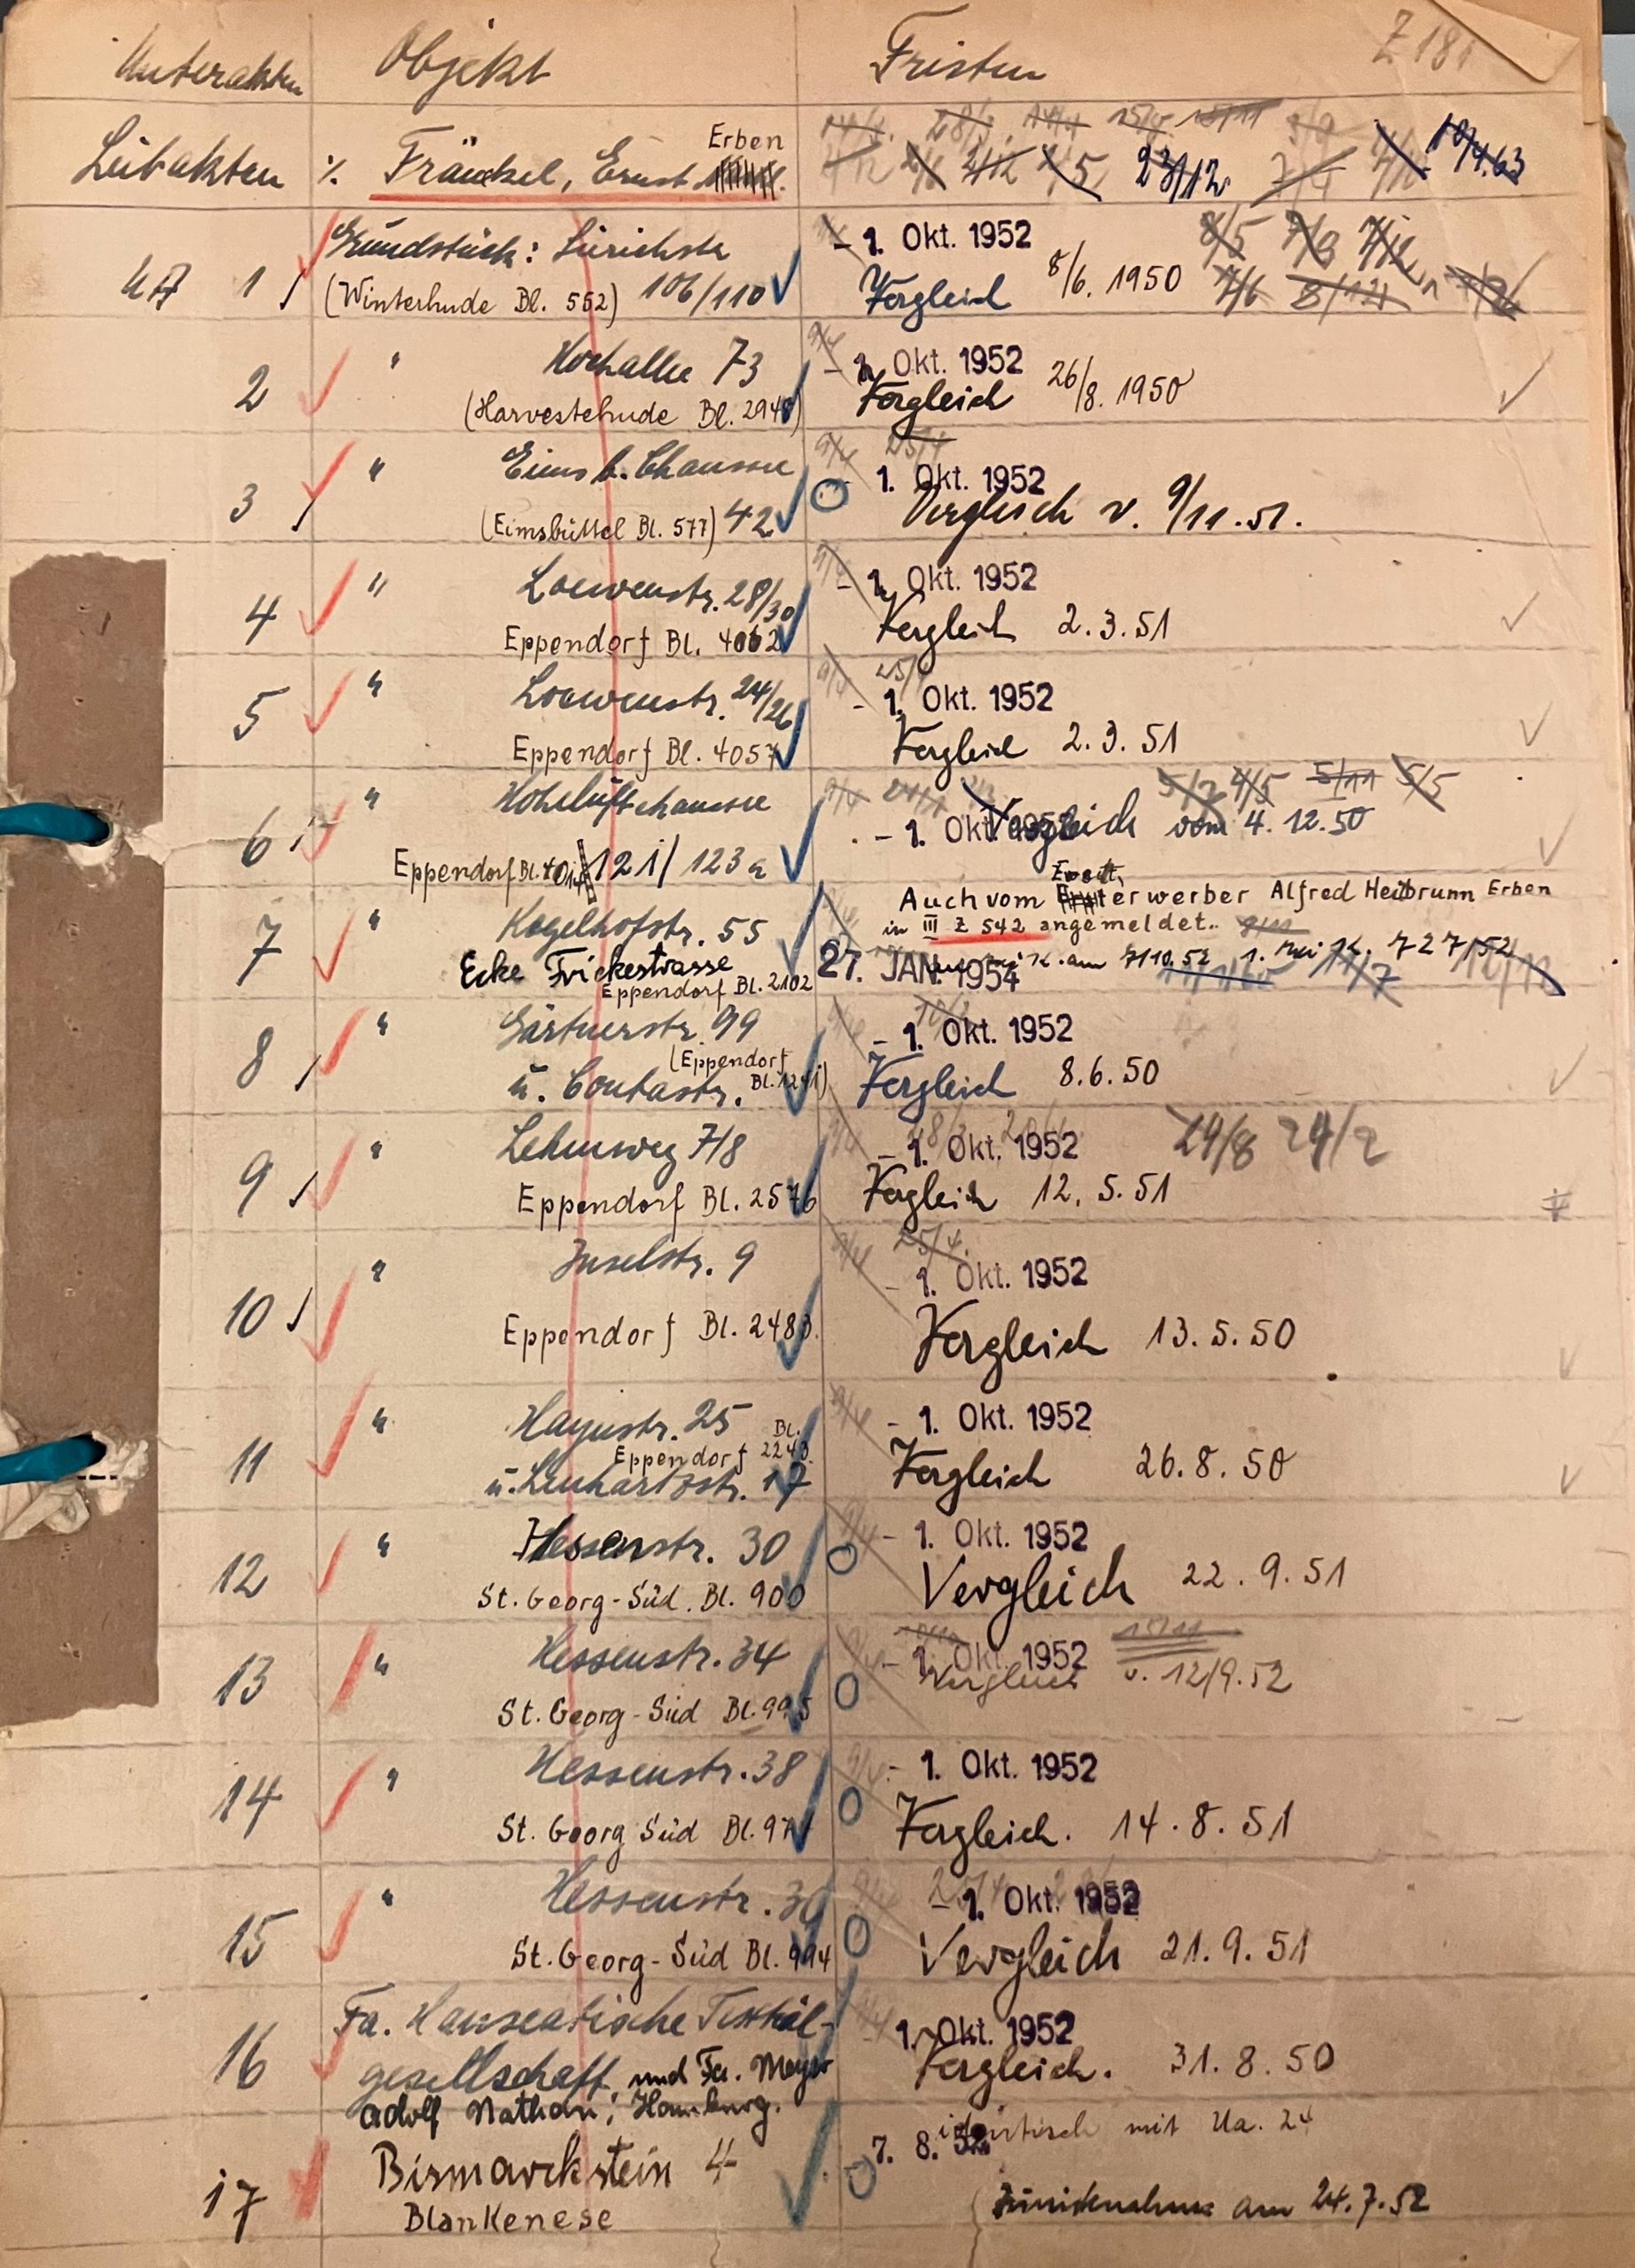 Unterakten Objekt Fristen Z 181
Erben
Leitakten ·/. Fränkel, Ernst
23/12 10/4.63
Grundstück: Zürichstr - 1. Okt. 1952 8/5 7/9
UA 1 (Winterhude Bl. 552) 106/110 Vergleich 8/6. 1950 7/6 8/12
" Hochallee 73 - 1. Okt. 1952
2 (Harvestehude Bl. 2948) Vergleich 26/8. 1950
25/4
" Eimsb. Chaussee 1. Okt. 1952
3 (Eimsbüttel Bl. 577) 42 Vergleich v. 9/11.51.
" Loewenstr. 28/30 - 1. Okt. 1952
4 Eppendorf Bl. 4062 Vergleich 2.3.51
25/4
" Loewenstr. 24/26 - 1. Okt. 1952
5 Eppendorf Bl. 4057 Vergleich 2.3.51
" Hoheluftchaussee 5/2 4/5 5/11 5/5
6 - 1. Okt. 1952 Vergleich vom 4.12.50
Eppendorf Bl. 121/123a
Zweit
Auch vom erwerber Alfred Heilbrunn Erben
" Kegelhofstr. 55 in III Z 542 angemeldet.
7 Ecke Frickestrasse 27. JAN. 1954 am 7/10.52 1.
Eppendorf Bl. 2102
" Gärtnerstr. 99 - 1. Okt. 1952
8 (Eppendorf
ü. Contastr. Bl. 1241) Vergleich 8.6.50
" Lehmweg 7/8 - 1. Okt. 1952 29/8 24/2
9 Eppendorf Bl. 2576 Vergleich 12.5.51
25/4.
" Inselstr. 9 - 1. Okt. 1952
10 Eppendorf Bl. 2483. Vergleich 13.5.50
" Haynstr. 25 Bl. - 1. Okt. 1952
11 Eppendorf 2243. Vergleich 26.8.50
ü. Lenhartzstr. 17
" Hessenstr. 30 - 1. Okt. 1952
12 St. Georg-Süd. Bl. 900 Vergleich 22.9.51
" Hessenstr. 34 - 1. Okt. 1952 15/11
13 Vergleich v. 12/9.52
St. Georg-Süd Bl. 995
" Hessenstr. 38 - 1. Okt. 1952
14 St. Georg Süd Bl. Vergleich. 14.8.51
" Hessenstr. - 1. Okt. 1952
15 St. Georg-Süd Bl. 994 Vergleich 21.9.51
Fa. Hanseatische Textil- 1. Okt. 1952
16 gesellschaft und Fa. Meyer Vergleich. 31.8.50
Adolf Nathan, Hamburg.
identisch mit Ua. 24
Bismarckstein 4 - 7. 8. 52
17 Blankenese Zurücknahme am 24.7.52